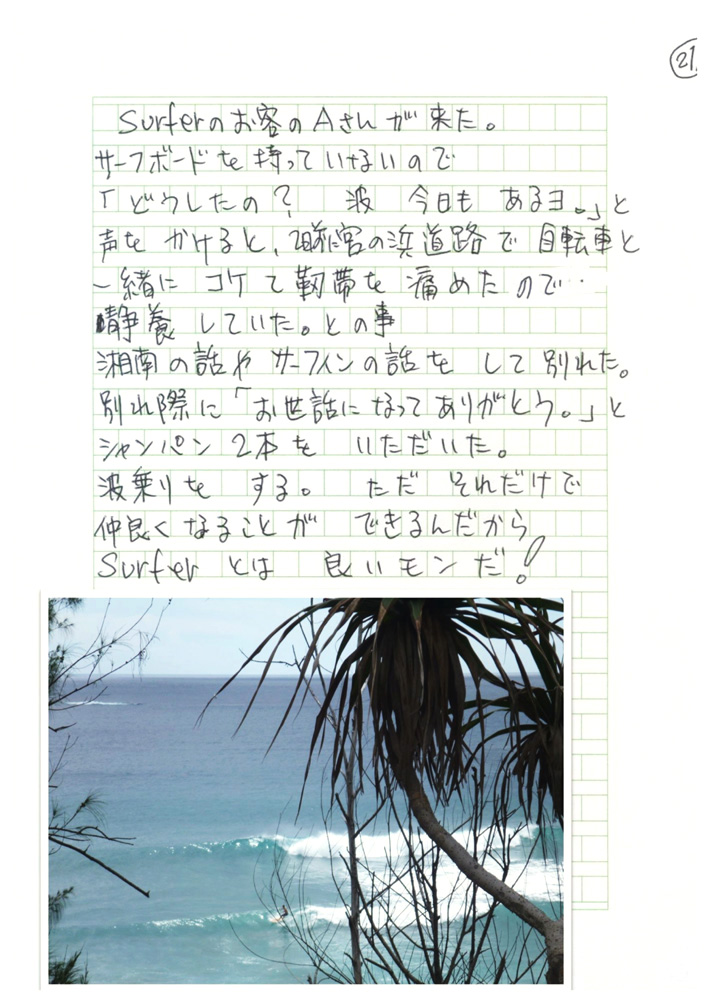 21.
Surferのお客のAさんが来た。
サーフボードを持っていないので
「どうしたの？ 波 今日も あるヨ。」と
声を かけると、 の浜道路で 自転車と
一緒に コケて靭帯を 痛めたので…
静養していた。との事
湘南の話や サーフィンの話を して 別れた。
別れ際に「お世話になってありがとう。」と
シャンパン 2本を いただいた。
波乗りを する。 ただ それだけで
仲良くなることが できるんだから
Surfer とは 良いモンだ!